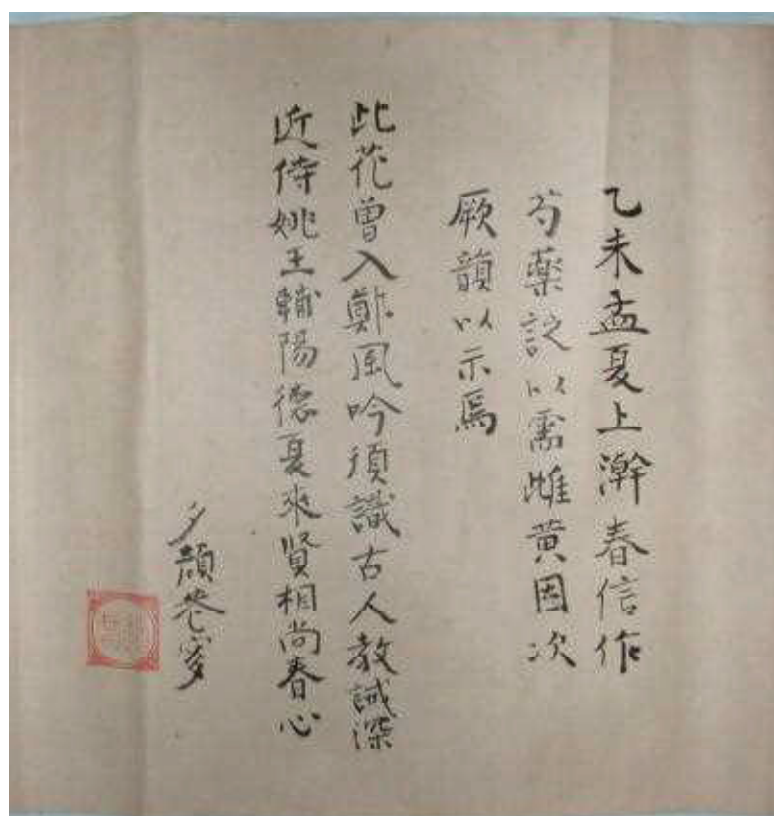 乙未孟夏上澣春信作
芍薬説以需雌黄因次
厥韻以示焉
此花曽入鄭風吟須識古人教誡深
近侍姚王輔陽徳夏来賢相尚春心
夕顔巷